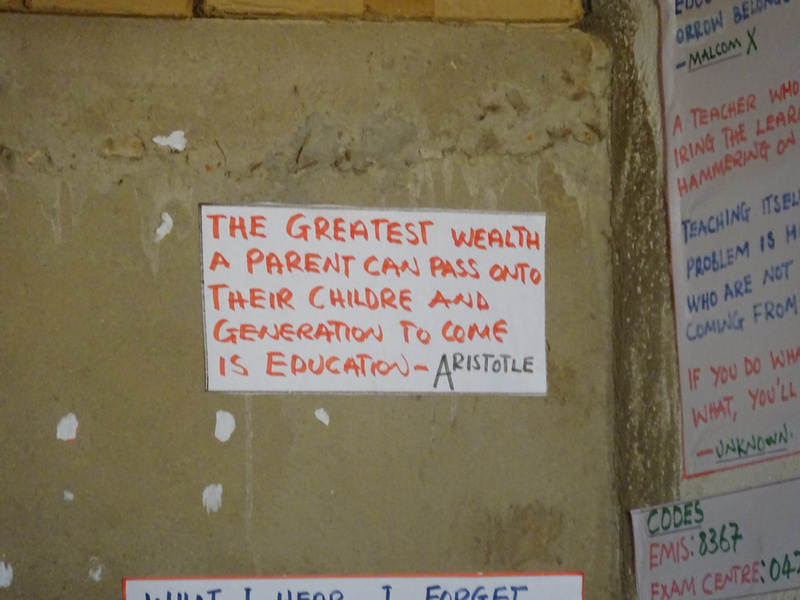 THE GREATEST WEALTH
A PARENT CAN PASS ONTO
THEIR CHILDRE AND
GENERATION TO COME
IS EDUCATION - ARISTOTLE
WHAT I HEAR, I FORGET
ORROW BELONG
- MALCOM X
A TEACHER WHO
IRING THE LEAR
HAMMERING ON
TEACHING ITSEL
PROBLEM IS H
WHO ARE NOT
COMING FROM
IF YOU DO WHA
WHAT, YOU'LL
- UNKNOWN.
CODES
EMIS: 8367
EXAM CENTRE: 042